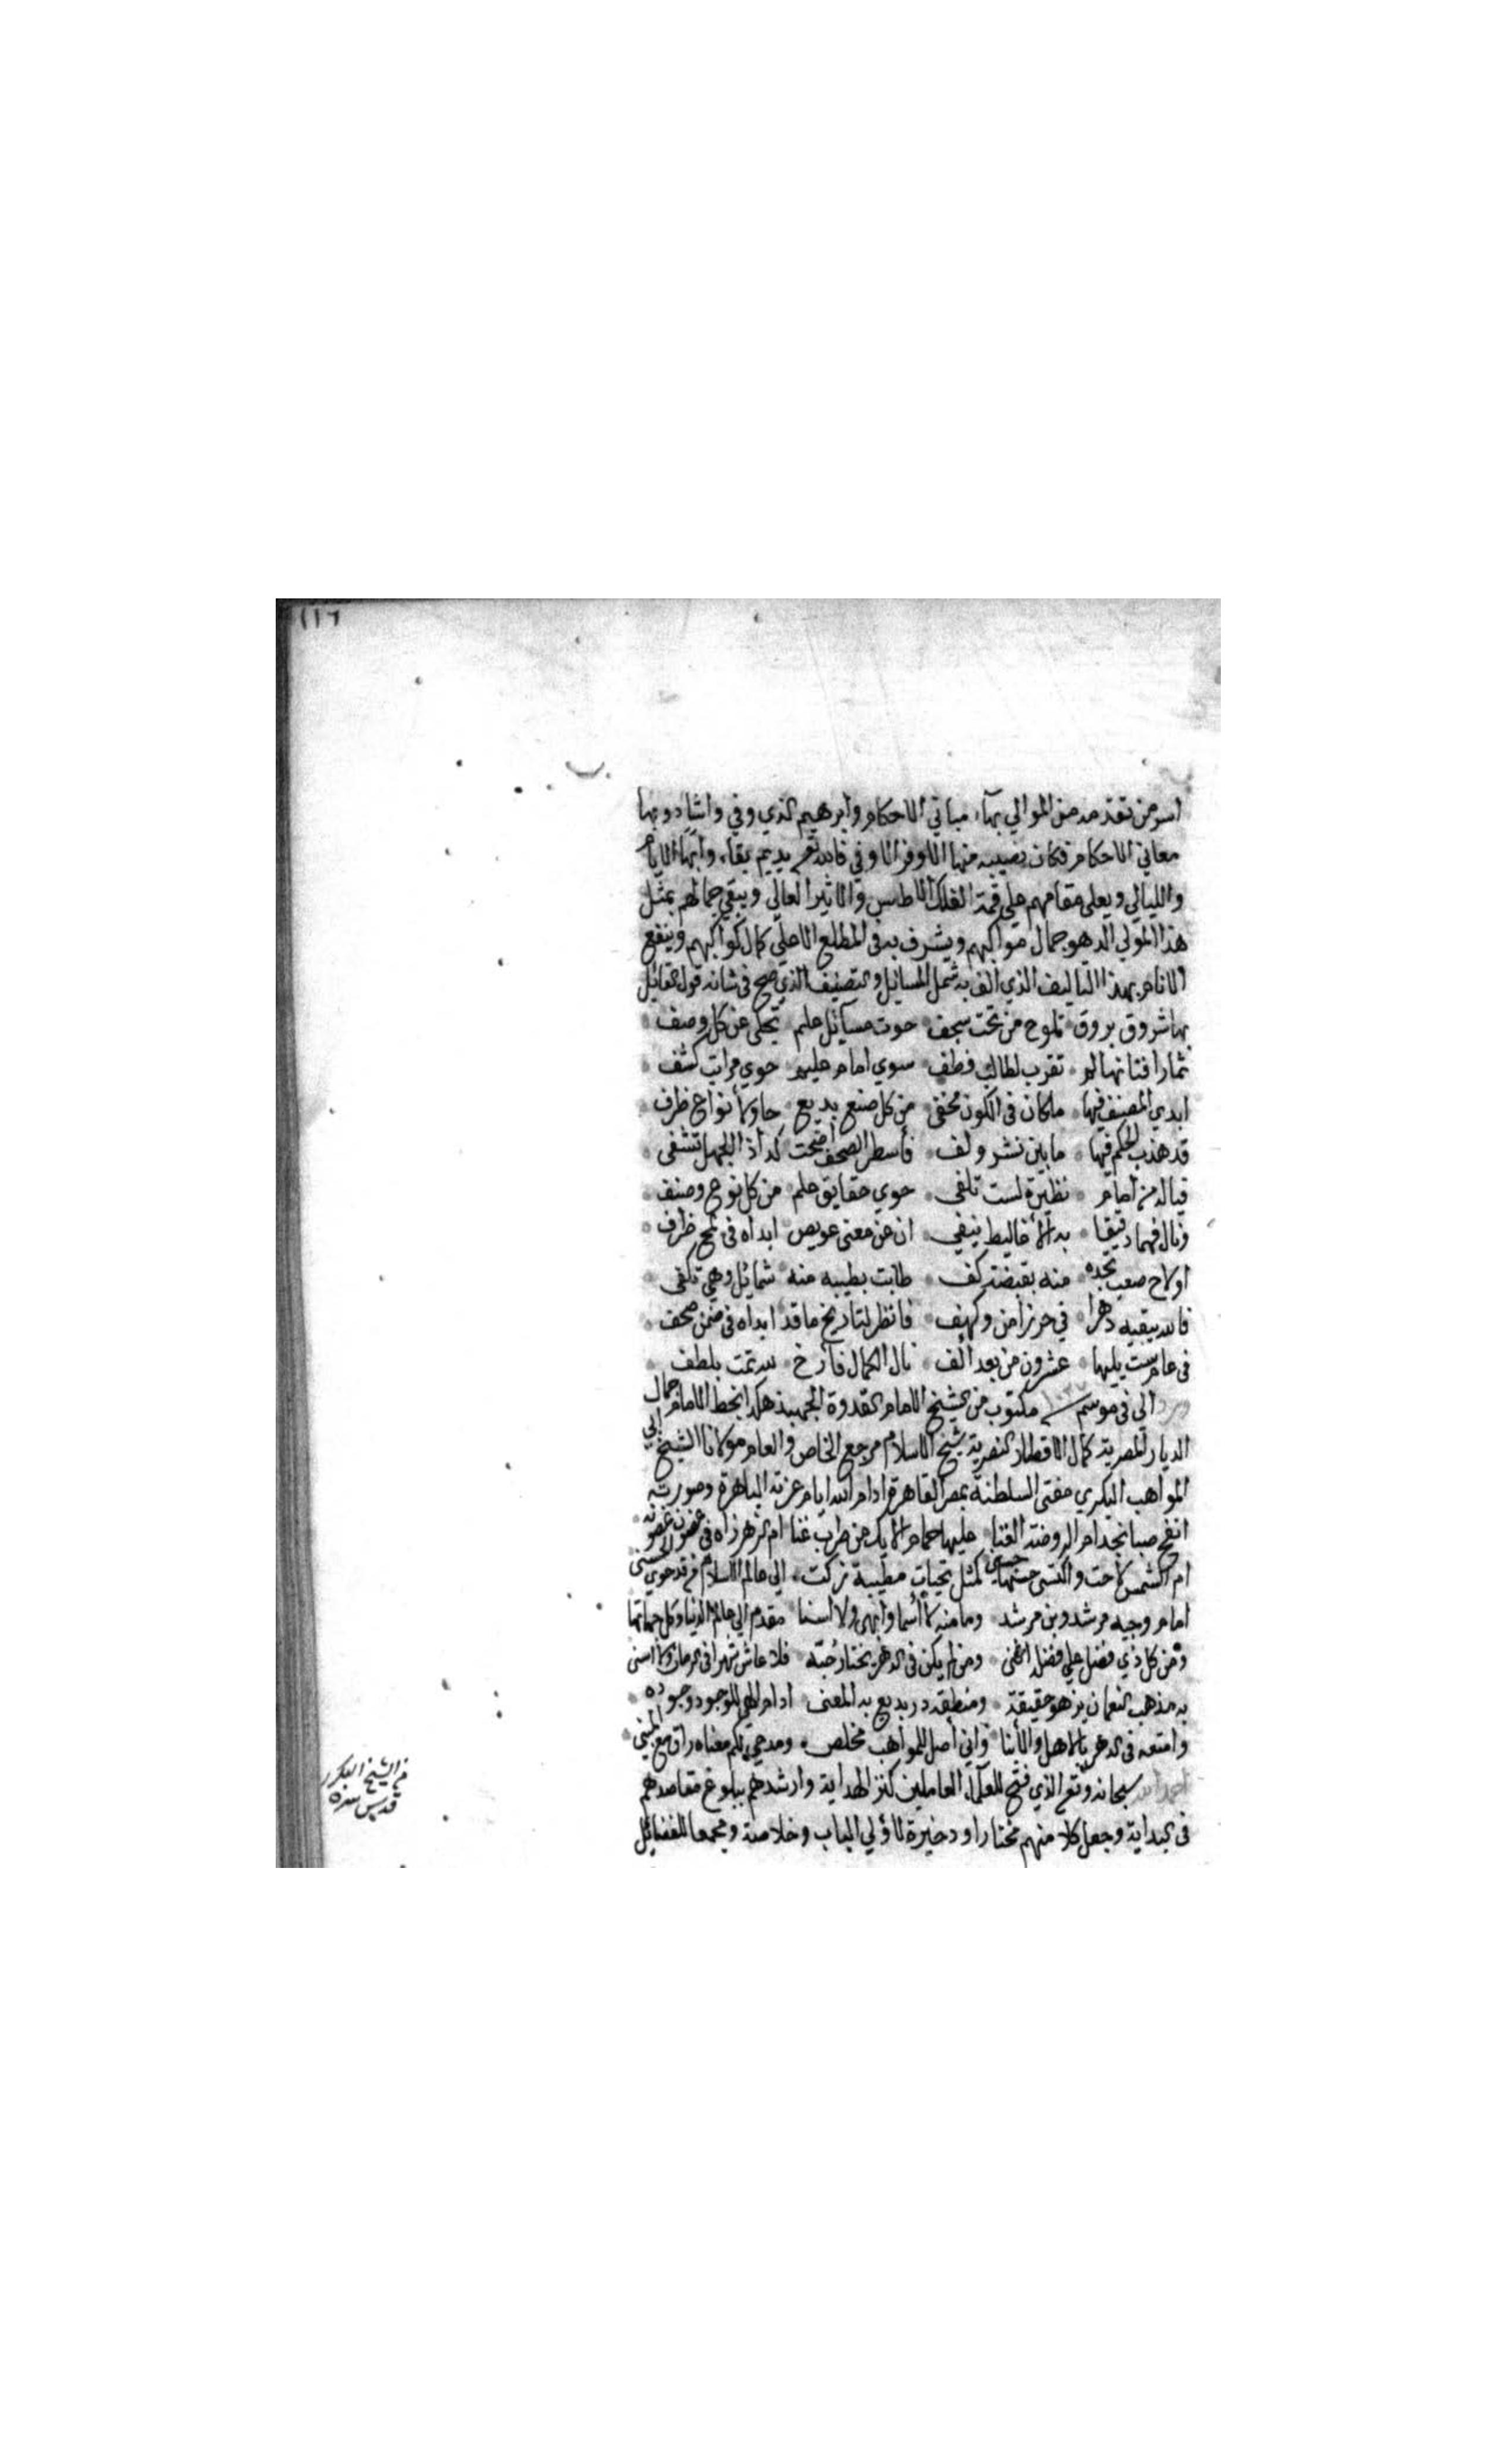 ١١٦
اسس من تقدمه من الموالي بهآء مباني الاحكام وابرهيم الذي وفي واشاد وبها
معاني الاحكام فكان نصيبه منها الاوفر الاوفي فالله تعم يديم بقاء وابهاء الايام
والليالي ويعلى مقامهم علي قمة الفلك الاطلس والاثير العالي ويبقي جمالهم بمثل
هذا المولي الذ هو جمال مواكبهم ويشرف به فى المطلع الاعلي كمال كواكبهم وينفع
الانام بهذا التاليف الذي الف به شمل المسائل والتصنيف الذي صح فى شانه قول القايل
بها شروق بروق تلوح من تحت سجف حوت مسآئل علم تجلى عن كل وصف
ثمارا فنانها لم تقرب لطالب قطف سوي امام عليم حوي مراتب كشف
ابدي المصنف فيها ماكان فى الكون مخفى من كل صنع بديع حاو لأنواع ظرف
قد هذب الحكم فيها مابين نشر ولف فأسطر الصحف اضحت لداذا الجهل تشفى
فياله من امام نظيره لست تلفى حوي حقايق علم من كل نوع وصنف
ونال فهما دقيقا به الأغاليط ينفي ان عن معنى عويص ابداه فى لمح طرف
اولاح صعب تجده منه بقبضة كف طابت بطيبه منه شمائل وهي تكفى
فالله يبقيه دهرا في حرز امن وكهف فانظر لتاريخ ماقد ابداه فى ضمن صحف
فى عام ست يليها عشرون من بعد الف نال الكمال فأرخ لله تمت بلطف
ورد الي فى موسم مكتوب من الشيخ الامام القدوة الجهبذ هكذا بخط الامام جمال
الديار المصرية كمال الاقطار النضرية شيخ الاسلام مرجع الخاص والعام مولانا الشيخ ابي
المواهب البكري مفتى السلطنة بمصر القاهرة ادام الله ايام عزته الباهرة وصورته
انفح صبا نجد ام الروضة الغنا عليها حمام الايك عن طرب غنا ام الزهر زاه فى غصون غصونه
ام الشمس لاحت واكتسى حسنها حسنى كمثل تحيات مطيبة زكت الى عالم الاسلام من قد حوي الحسنى
امام وجيه مرشد وبن مرشد ومامنه لا أسما وابهى ولا اسنا مقدم الي عالم الدنيا وكل حماتها
ومن كل ذي فضل علي فضله اثنى ومن لم يكن فى الدهر يختار حبه فلا عاش شهرا فى الزمان ولا اسنى
به مذهب النعمان يزهو حقيقة ومنطقه در بديع به المعنى ادام الهي للوجود وجوده
وامتعه فى الدهر بالاهل والأبنا واني أصل للمواهب مخلص ومدحي لكم معناه راق مع المبنى
احمد الله سبحانه وتعم الذي فتح للعلمآء العاملين كنز الهداية وارشدهم ببلوغ مقاصدهم
فى البداية وجعل كلا منهم مختارا ودخيرة لاولي الباب وخلاصة ومجمعا للفضائل
من الشيخ البكري
قدس سره